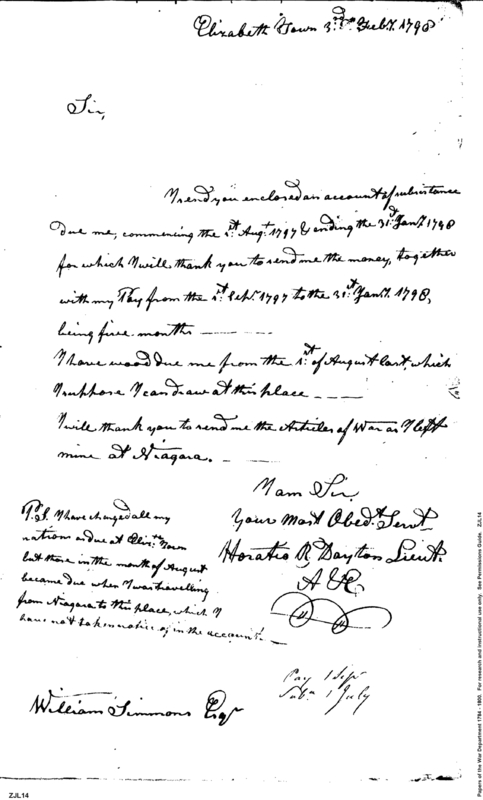 Elizabeth Town 3rd Feby. 1798
Sir,
I send you enclosed an account of subsistance
Due me, commencing the 1st. Augt. 1797 & ending the 31st. Jany. 1798
for which I will thank you to send me the money, together
with my Pay from the 1st. Sepr. 1797 to the 31st. Jany. 1798,
being five months — — —
I have wood due me from the 1st. of August last, which
I suppose I can draw at this place — — —
I will thank you to send me the Articles of War as I left
mine at Niagara. — — —
I am Sir,
Your Most Obedt. Servt.
Horatio R. Dayton Lieut.
P.S. I have charged all my
rations as due at Elizth. Town
but those in the month of August
became due when I was travelling
from Niagara to this place, which I
have not taken notice of in the account. —
Pay 1 Sepr
Subs. 1 July
William Simmons Esqr
ZJL14
Papers of the War Department 1784 - 1800. For research and instructional use only. See Permissions Guide. ZJL14